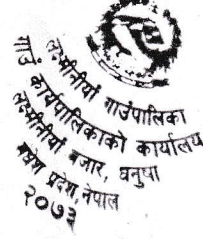 लक्ष्मीनीयाँ गाउँपालिका
गाउँ कार्यपालिकाको कार्यालय
लक्ष्मीनीयाँ बजार, धनुषा
मधेश प्रदेश, नेपाल
२०७३